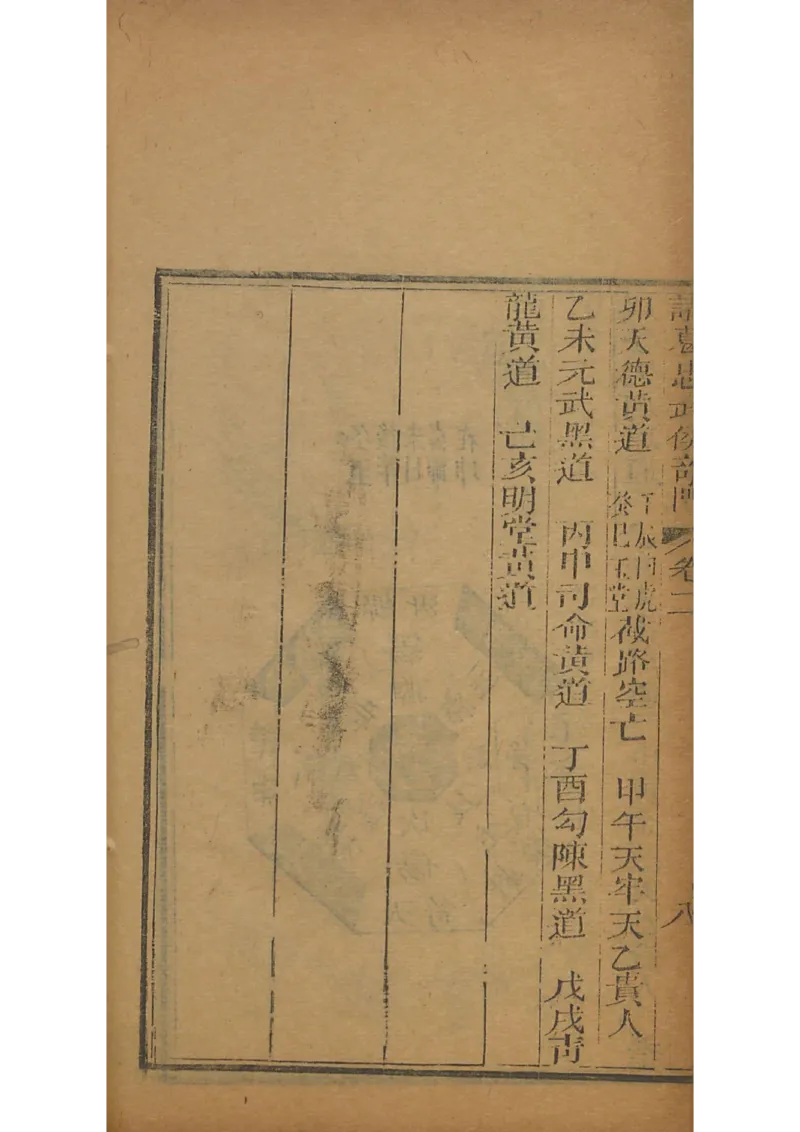 諸葛忠武侯奇門 卷二 八
卯天德黄道 壬辰白虎癸巳玉堂截路空亡 甲午天牢天乙貴人
乙未元武黑道 丙申司命黄道 丁酉勾陳黑道 戊戌靑
龍黄道 己亥明堂黄道